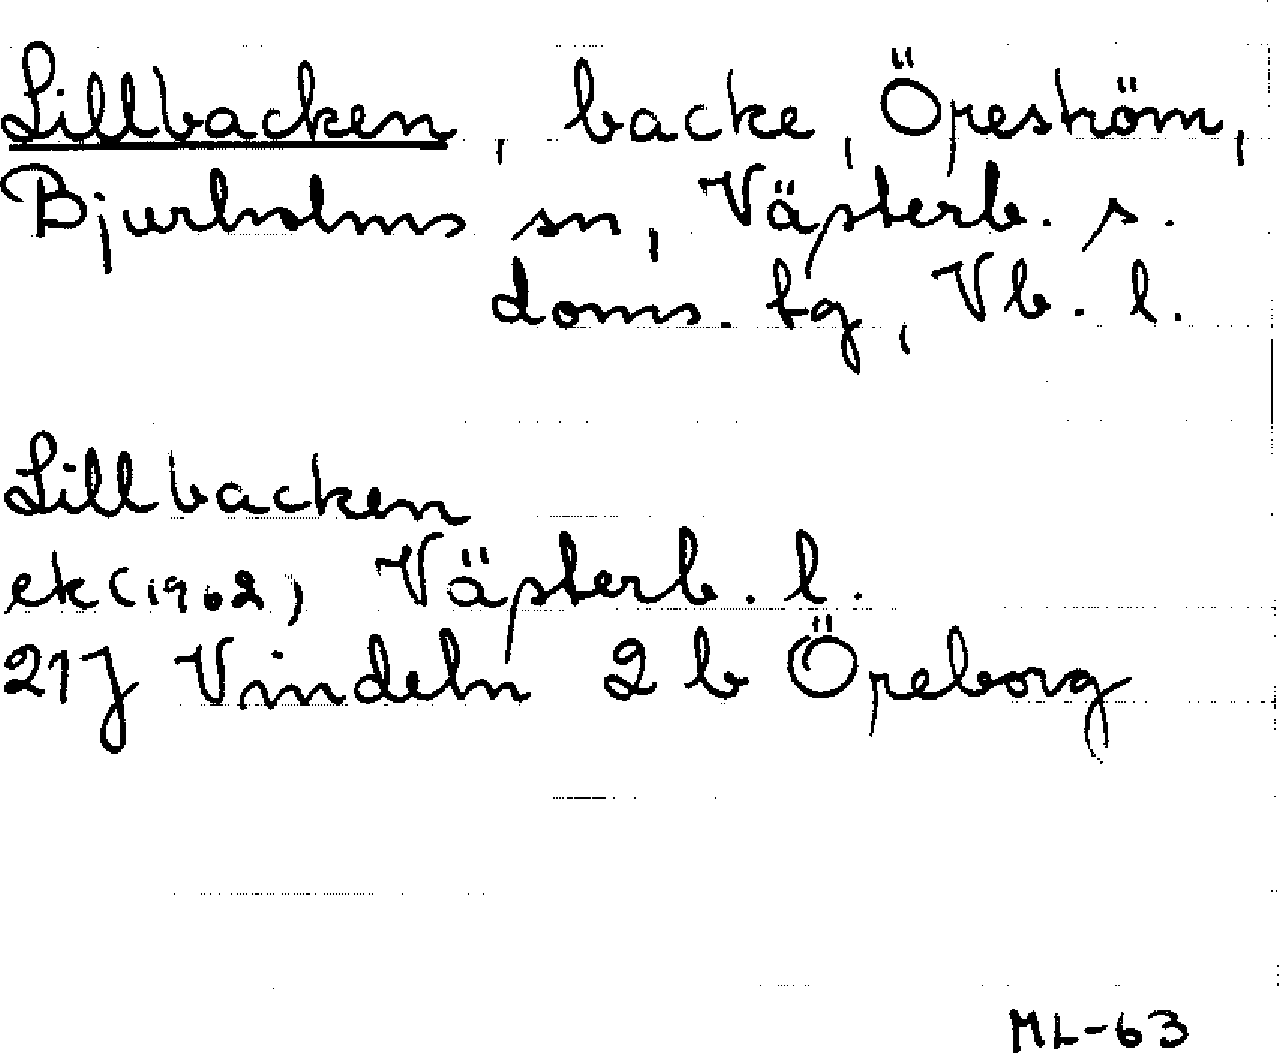 Lillbacken, backe, Öreström,
Bjurholms sn, Västerb. s.
doms. tg, Vb. l.
Lillbacken
ek (1962) Västerb. l.
21 J Vindeln 2 b Öreborg
ML-63